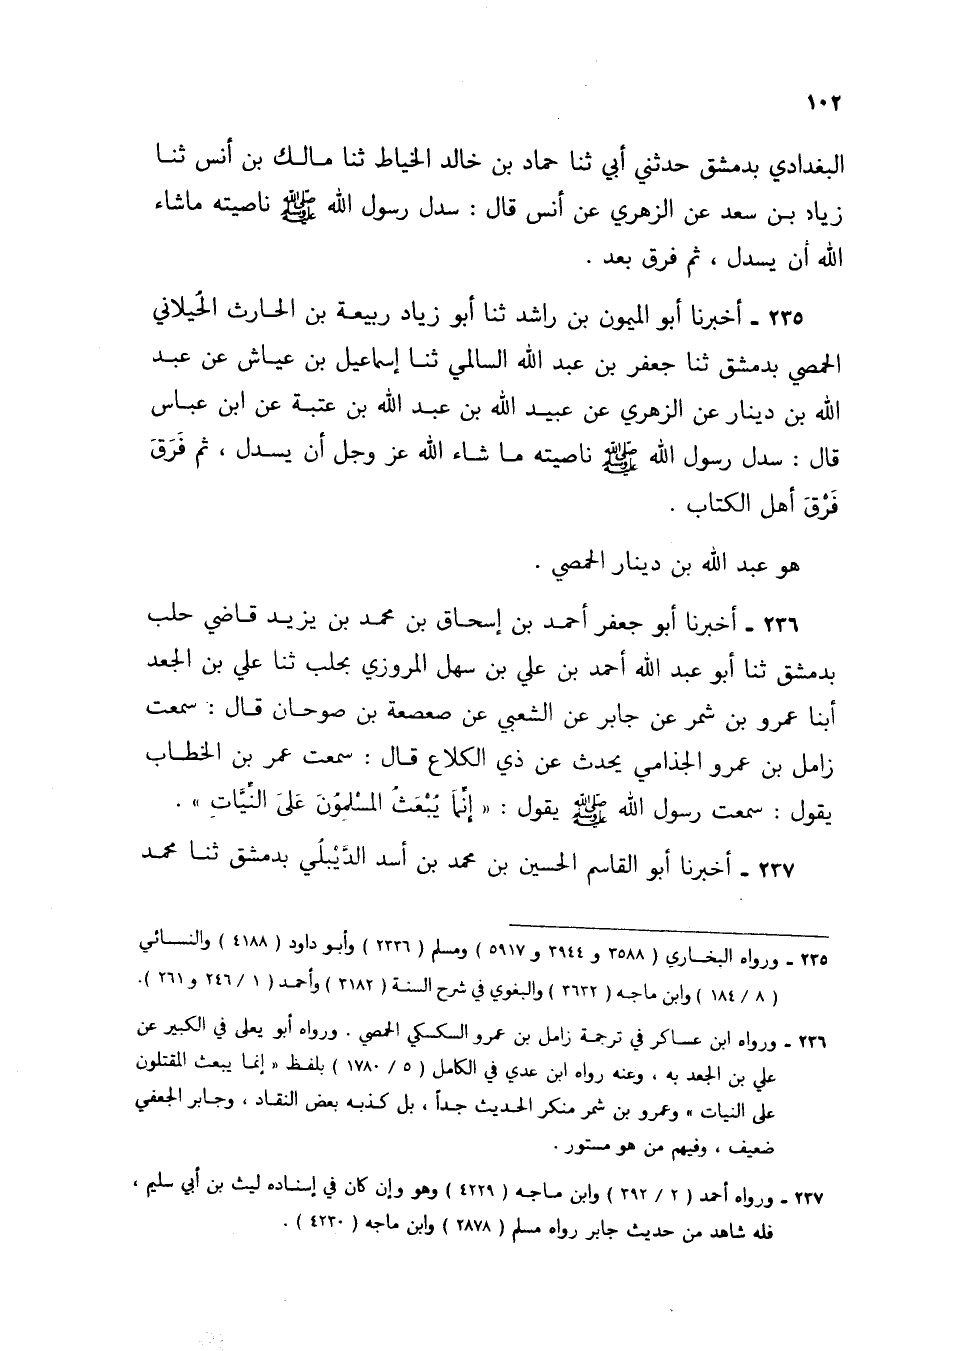 ١٠٢
البغدادي بدمشق حدثني أبي ثنا حماد بن خالد الخياط ثنا مالك بن أنس ثنا
زياد بن سعد عن الزهري عن أنس قال : سدل رسول الله ﷺ ناصيته ماشاء
الله أن يسدل ، ثم فرق بعد .
٢٣٥ ـ أخبرنا أبو الميمون بن راشد ثنا أبو زياد ربيعة بن الحارث الخُيلاني
الحمصي بدمشق ثنا جعفر بن عبد الله السالمي ثنا إسماعيل بن عياش عن عبد
الله بن دينار عن الزهري عن عبيد الله بن عبد الله بن عتبة عن ابن عباس
قال : سدل رسول الله ﷺ ناصيته ما شاء الله عز وجل أن يسدل ، ثم فَرَقَ
فَرْقَ أهل الكتاب .
هو عبد الله بن دينار الحمصي .
٢٣٦ ـ أخبرنا أبو جعفر أحمد بن إسحاق بن محمد بن يزيد قاضي حلب
بدمشق ثنا أبو عبد الله أحمد بن علي بن سهل المروزي بحلب ثنا علي بن الجعد
أبنا عمرو بن شمر عن جابر عن الشعبي عن صعصعة بن صوحان قال : سمعت
زامل بن عمرو الجذامي يحدث عن ذي الكلاع قال : سمعت عمر بن الخطاب
يقول : سمعت رسول الله ﷺ يقول : « إنَّمَا يُبْعَثُ المُسْلِمُوْنَ عَلَىَ النِّيَّاتِ » .
٢٣٧ ـ أخبرنا أبو القاسم الحسين بن محمد بن أسد الدَّيْبُلي بدمشق ثنا محمد
٢٣٥ ـ ورواه البخاري ( ٣٥٨٨ و ٣٩٤٤ و ٥٩١٧ ) ومسلم ( ٢٣٣٦ ) وأبو داود ( ٤١٨٨ ) والنسائي
( ٨ / ١٨٤ ) وابن ماجه ( ٣٦٣٢ ) والبغوي في شرح السنة ( ٣١٨٢ ) وأحمد ( ١ / ٢٤٦ و ٢٦١ ).
٢٣٦ ـ ورواه ابن عساكر في ترجمة زامل بن عمرو السكسكي الحمصي . ورواه أبو يعلى في الكبير عن
علي بن الجعد به ، وعنه رواه ابن عدي في الكامل ( ٥ / ١٧٨٠ ) بلفظ « إنما يبعث المقتلون
على النيات » وعمرو بن شمر منكر الحديث جداً ، بل كذبه بعض النقاد ، وجابر الجعفي
ضعيف ، وفيهم من هو مستور .
٢٣٧ ـ ورواه أحمد ( ٢ / ٣٩٢ ) وابن ماجه ( ٤٢٢٩ ) وهو وإن كان في إسناده ليث بن أبي سليم ،
فله شاهد من حديث جابر رواه مسلم ( ٢٨٧٨ ) وابن ماجه ( ٤٢٣٠ ) .